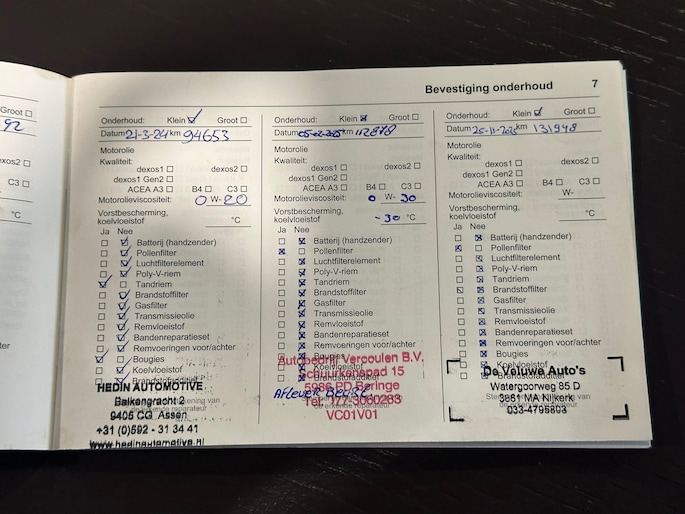 Groot
92
exos2
C3
°C
ter
Bevestiging onderhoud 7
Onderhoud: Klein Groot
Datum 21-3-24 km 94653
Motorolie
Kwaliteit:
dexos1 dexos2
dexos1 Gen2
ACEA A3 B4 C3
Motorolieviscositeit: 0 W- 20
Vorstbescherming,
koelvloeistof °C
Ja Nee
Batterij (handzender)
Pollenfilter
Luchtfilterelement
Poly-V-riem
Tandriem
Brandstoffilter
Gasfilter
Transmissieolie
Remvloeistof
Bandenreparatieset
Remvoeringen voor/achter
Bougies
Koelvloeistof
Brandstofadditief
HEDIN AUTOMOTIVE
Balkengracht 2
9405 CG Assen
+31 (0)592 - 31 34 41
www.hedinautomotive.nl
Onderhoud: Klein Groot
Datum 05-02-2025 km 112878
Motorolie
Kwaliteit:
dexos1 dexos2
dexos1 Gen2
ACEA A3 B4 C3
Motorolieviscositeit: 0 W- 30
Vorstbescherming,
koelvloeistof -30 °C
Ja Nee
Batterij (handzender)
Pollenfilter
Luchtfilterelement
Poly-V-riem
Tandriem
Brandstoffilter
Gasfilter
Transmissieolie
Remvloeistof
Bandenreparatieset
Remvoeringen voor/achter
Bougies
Koelvloeistof
Brandstofadditief
Autobedrijf Vercoulen B.V.
Schuurkenspad 15
5986 PD Beringe
Tel. 077-3060283
VC01V01
AFLEVER BEURT
de erkende reparateur
Onderhoud: Klein Groot
Datum 25-11-2025 km 131948
Motorolie
Kwaliteit:
dexos1 dexos2
dexos1 Gen2
ACEA A3 B4 C3
Motorolieviscositeit: W-
Vorstbescherming,
koelvloeistof °C
Ja Nee
Batterij (handzender)
Pollenfilter
Luchtfilterelement
Poly-V-riem
Tandriem
Brandstoffilter
Gasfilter
Transmissieolie
Remvloeistof
Bandenreparatieset
Remvoeringen voor/achter
Bougies
Koelvloeistof
Brandstofadditief
De Veluwe Auto's
Watergoorweg 85 D
3861 MA Nijkerk
033-4795803
de erkende reparateur